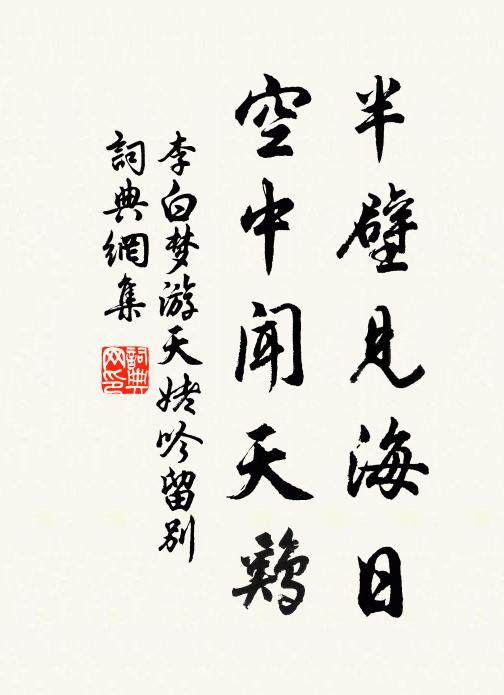 半壁見海日
空中聞天鷄
李白梦游天姥吟留别
詞典網集
詞典网印